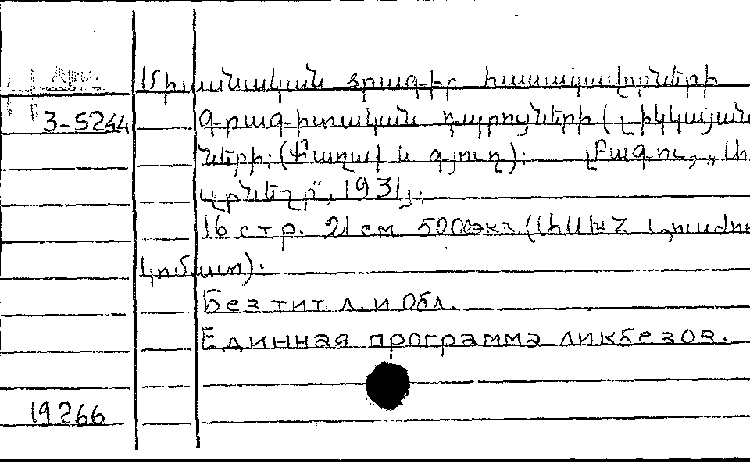 Միասնական ծրագիր հասակավորների
3-5244 գրագիտական դպրոցների (լիկկայան
ների, (Քաղաք և գյուղ): [Բագու,
1931]:
16 стр. 21 см 5000экз. (ԱԽՍՀ Լուսժող
կոմատ):
Без тит. л. и обл.
Единная программа ликбезов.
19266